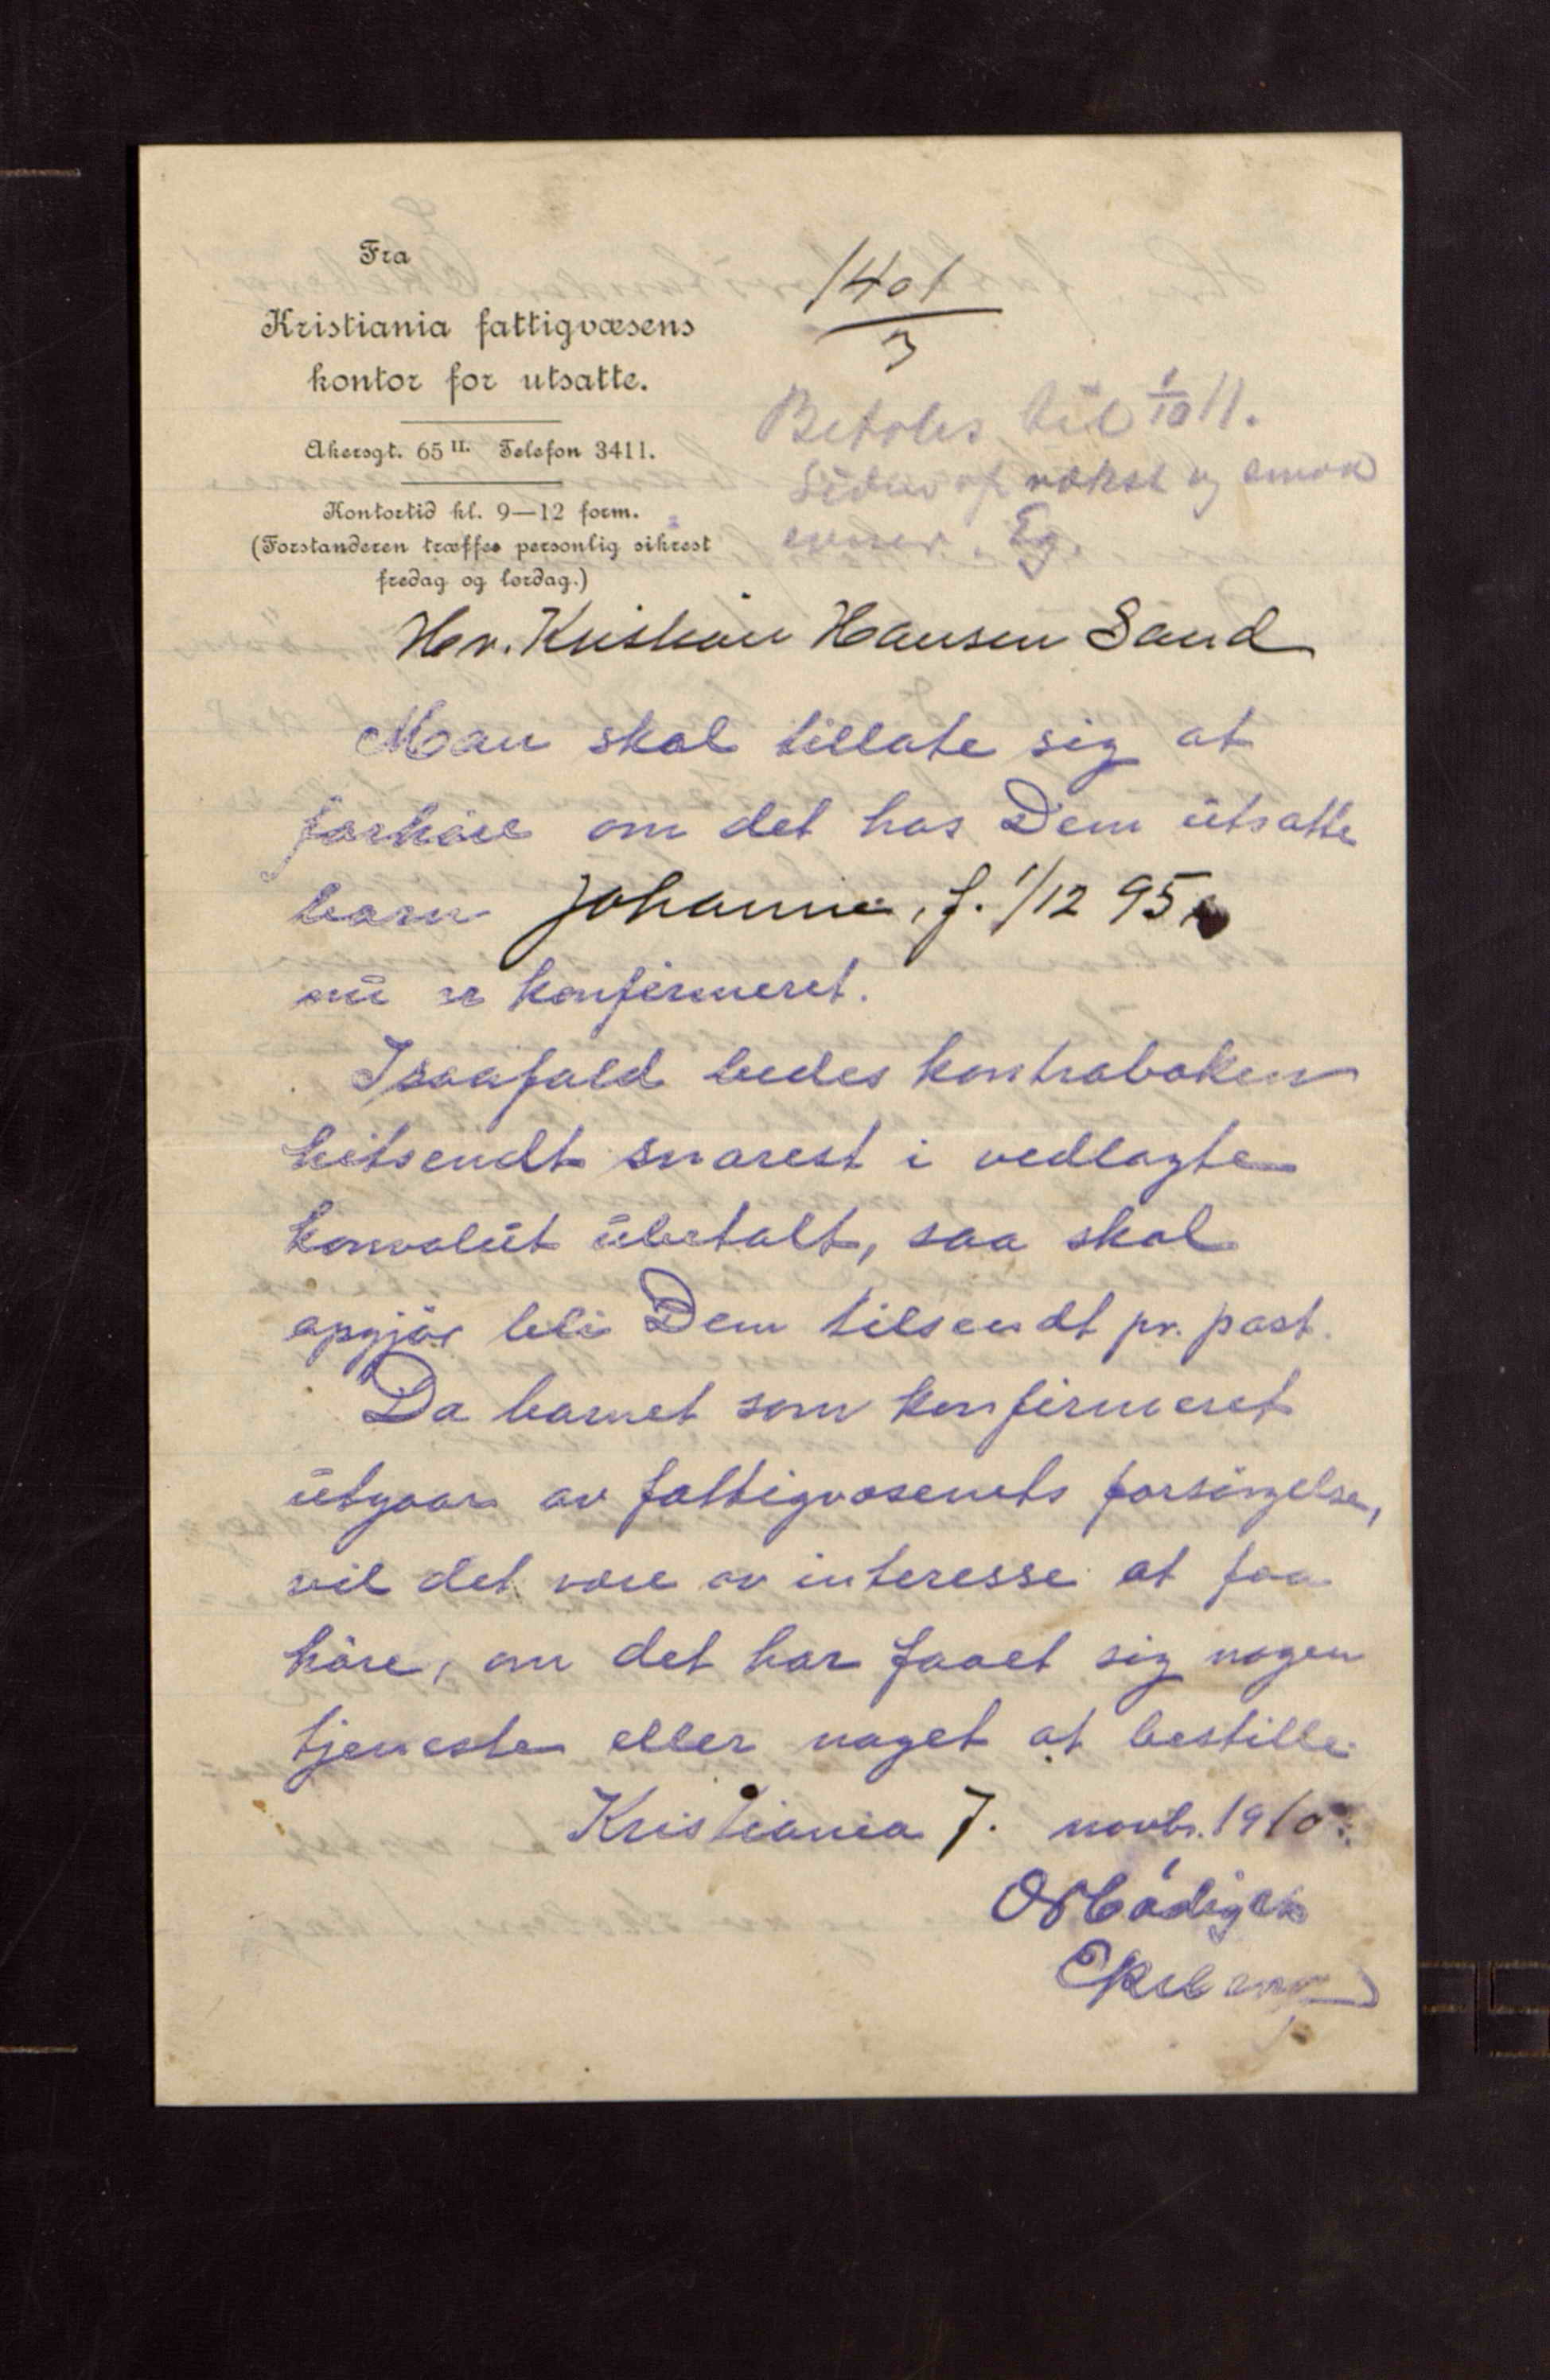 Fra
Kristiania fattigvæsens
kontor for utsatte.
Akersgt. 65 II. Telefon 3411.
Kontortid kl. 9—12 form.
(Forstanderen træffes personlig sikrest
fredag og lørdag.)
1401
3
Betales til 1/10 11.
Liden af vækst og
Eg.
Hr. Kristian Hansen Sand
Man skal tillate sig at
forhøre om det hos Dem utsatte
barn Johannes, f. 1/12 95,
nu er konfirmeret.
Isaafald bedes kontraboken
hitsendt snarest i vedlagte
konvolut ubetalt, saa skal
opgjør bli Dem tilsendt pr. post.
Da barnet som konfirmeret
utgaar av fattigvæsenets forsørgelse,
vil det være av interesse at faa
høre, om det har faaet sig nogen
tjeneste eller noget at bestille
Kristiania 7. novbr. 1910.
Ærbødigst
Ekeberg